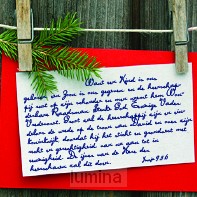 Want een Kind is ons
geboren een Zoon is ons gegeven en de heerschap-
pij rust op zijn schouder en men noemt hem Won-
derbare Raadsman Sterke God Eeuwige Vader
Vredevorst. Groot zal de heerschappij zijn en eind
deloos de vrede op de troon van David en over zijn
koninkrijk doordat hij het sticht en grondvest met
recht en gerechtigheid van nu aan tot in
eeuwigheid. De ijver van de Here der
heerscharen zal dit doen.
Jes 9:5,6
lumina